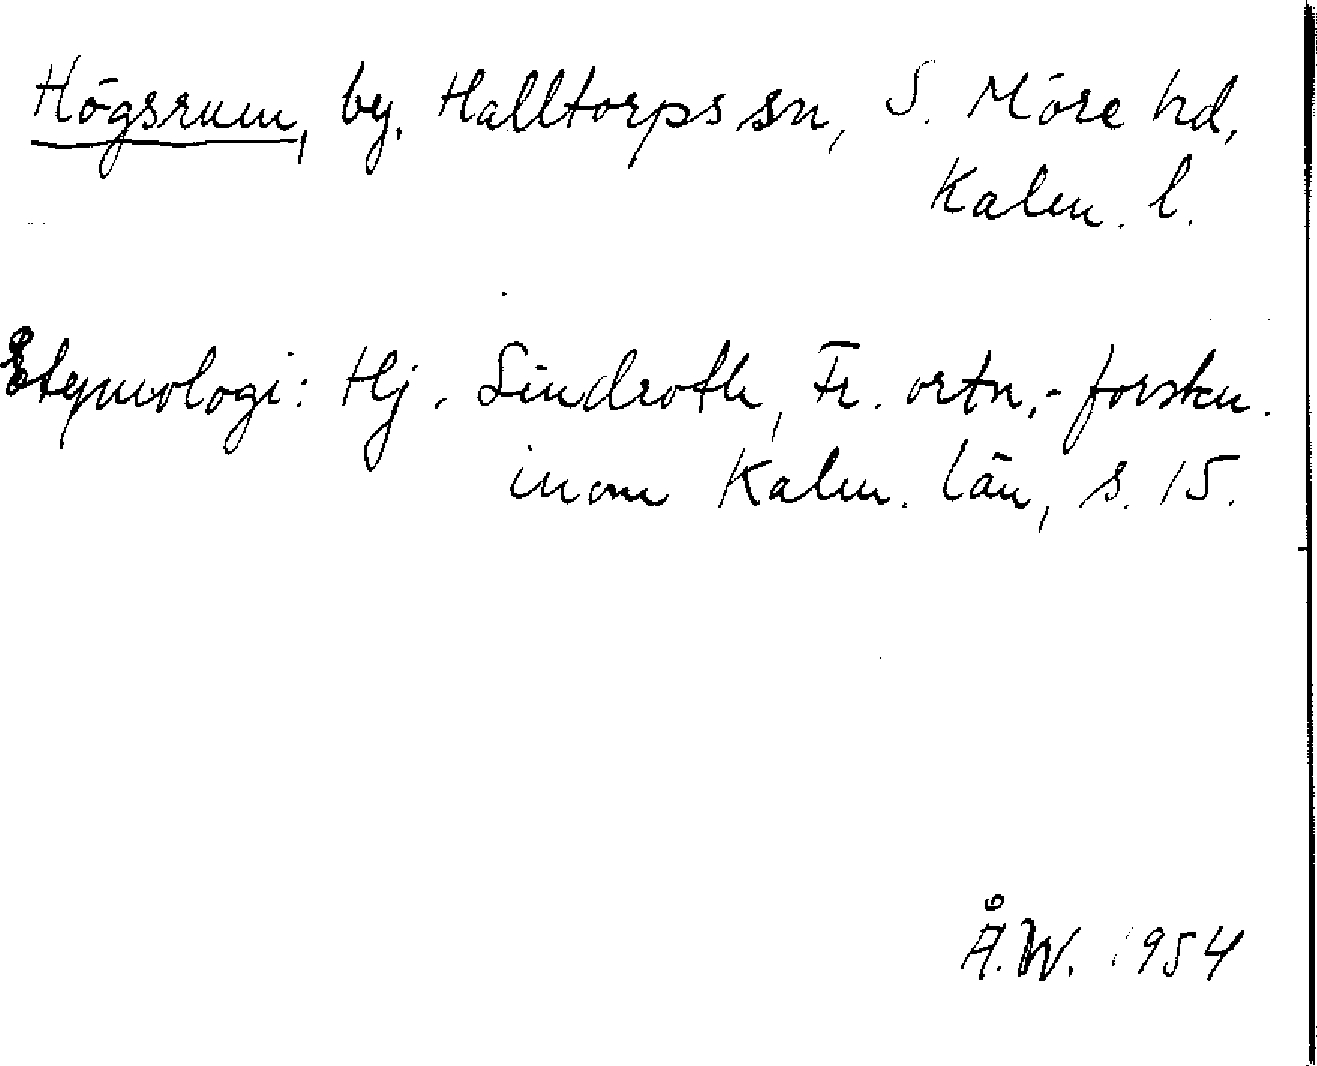 Högsrum, by, Halltorps sn, S. Möre hd,
Kalm. l.
Etymologi: Hj. Lindroth, Fr. ortn.-forskn.
inom Kalm. län, s. 15.
Å.W. 1954